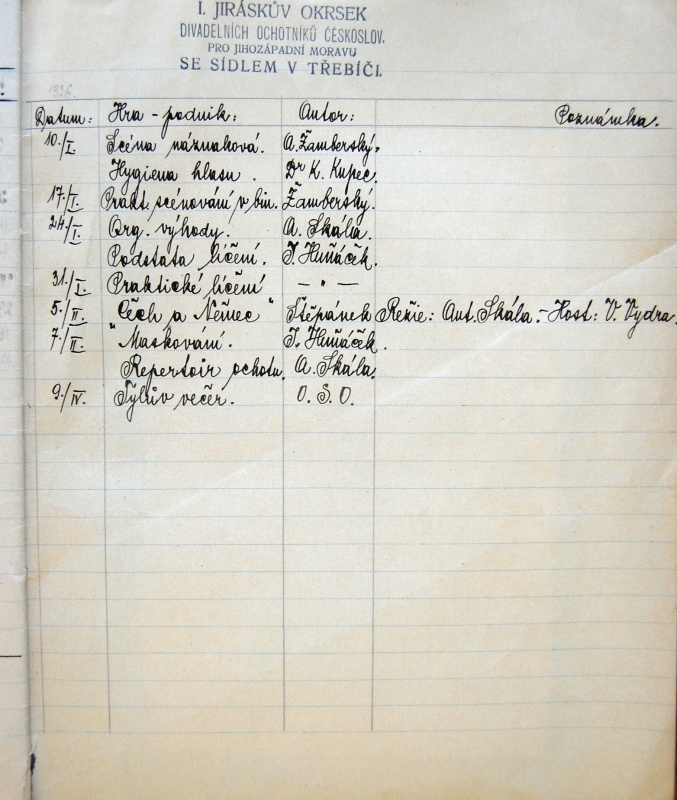 I. JIRÁSKŮV OKRSEK
DIVADELNÍCH OCHOTNÍKŮ ČESKOSLOV.
PRO JIHOZÁPADNÍ MORAVU
SE SÍDLEM V TŘEBÍČI.
1926.
Datum: Hra - podnik: Autor: Poznámka.
10./I. Scéna náznaková. A. Žamberský.
Hygiena hlasu. Dr K. Kupec.
17./I. Prakt. scénování v bin. Žamberský.
24./I. Org. výhody. A. Skála.
Podstata líčení. J. Huňáček.
31./I. Praktické líčení — " —
5./II. „Čech a Němec" Štěpánek Režie: Ant. Skála. - Host: V. Vydra.
7./II. Maskování. J. Huňáček.
Repertoir ochotn. A. Skála.
9./IV. Tylův večer. O. S. O.